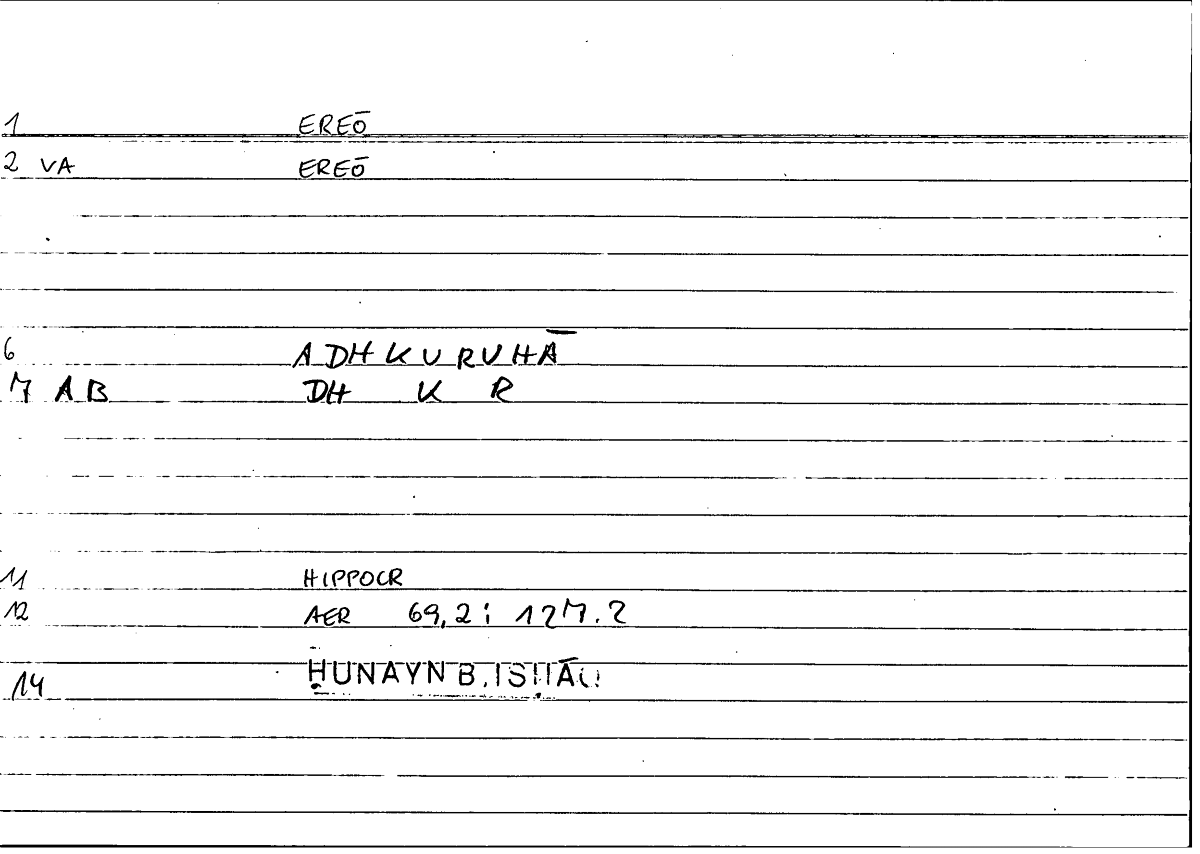 1 EREŌ
2 VA EREŌ
6 ADHKURUHĀ
7 AB DH K R
11 HIPPOCR
12 AER 69,2; 127.2
14 ḤUNAYN B. ISḤĀQ